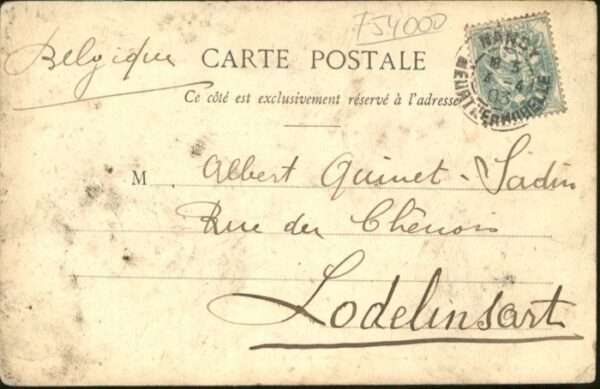 F54000
Belgique
CARTE POSTALE
Ce côté est exclusivement réservé à l'adresse
NANCY
MEURTHE-ET-MOSELLE
M Albert Quinet-Sadin
Rue du Chênois
Lodelinsart